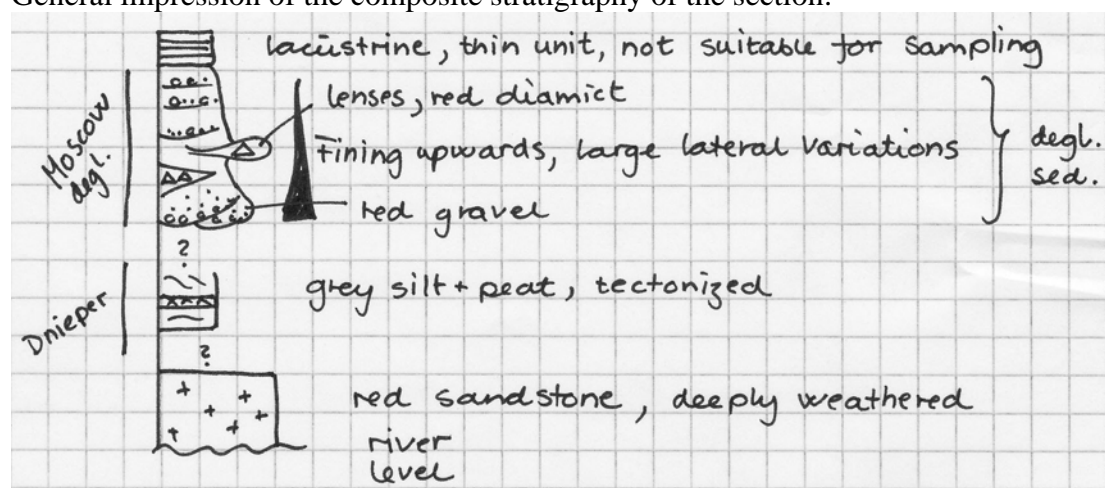 General impression of the composite stratigraphy of the section:
lacustrine, thin unit, not suitable for sampling
lenses, red diamict
Moscow
degl.
Fining upwards, large lateral variations
degl.
sed.
red gravel
?
Dnieper
grey silt + peat, tectonized
?
red sandstone, deeply weathered
river
level